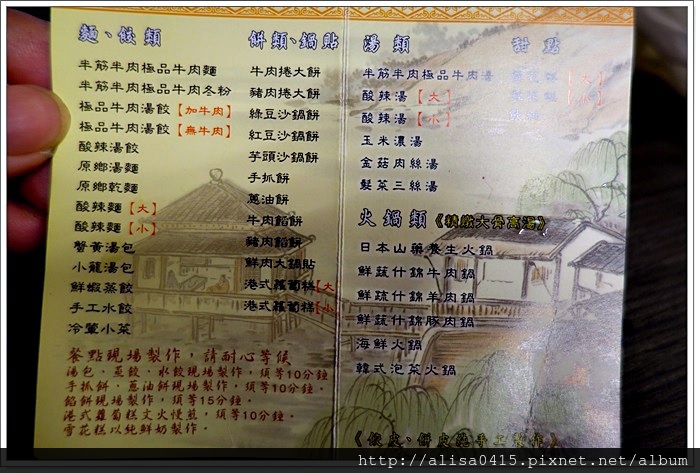 麵、餃類
半筋半肉極品牛肉麵
半筋半肉極品牛肉冬粉
極品牛肉湯餃【加牛肉】
極品牛肉湯餃【無牛肉】
酸辣湯餃
原鄉湯麵
原鄉乾麵
酸辣麵【大】
酸辣麵【小】
蟹黃湯包
小龍湯包
鮮蝦蒸餃
手工水餃
冷葷小菜
餐點現場製作，請耐心等候
湯包、蒸餃、水餃現場製作，須等10分鐘。
手抓餅、蔥油餅現場製作，須等10分鐘。
餡餅現場製作，須等15分鐘。
港式蘿蔔糕文火慢煎，須等10分鐘。
雪花糕以純鮮奶製作。
餅類、鍋貼
牛肉捲大餅
豬肉捲大餅
綠豆沙鍋餅
紅豆沙鍋餅
芋頭沙鍋餅
手抓餅
蔥油餅
牛肉餡餅
豬肉餡餅
鮮肉大鍋貼
港式蘿蔔糕【大
港式蘿蔔糕【小
湯類
半筋半肉極品牛肉湯
酸辣湯【大】
酸辣湯【小】
玉米濃湯
金菇肉絲湯
髮菜三絲湯
甜點
【大】
【小】
火鍋類《精燉大骨高湯》
日本山藥養生火鍋
鮮蔬什錦牛肉鍋
鮮蔬什錦羊肉鍋
鮮蔬什錦豚肉鍋
海鮮火鍋
韓式泡菜火鍋
《餃皮、餅皮純手工製作》
http://alisa0415.pixnet.net/album